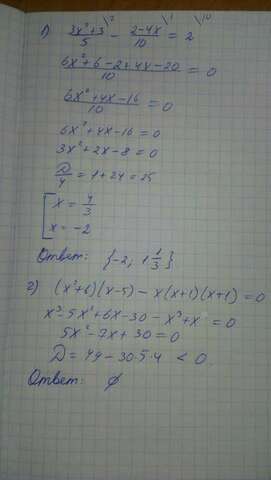 1) (3x²+3)/5 \2 - (2-4x)/10 \1 = 2 \10
(6x²+6-2+4x-20)/10 = 0
(6x²+4x-16)/10 = 0
6x²+4x-16=0
3x²+2x-8=0
D/4 = 1+24=25
[ x = 4/3
x = -2
Ответ: {-2; 1 1/3}
2) (x²+6)(x-5) - x(x+1)(x+1)=0
x³-5x²+6x-30-x³+x =0
5x²-7x+30=0
D=49-30·5·4 <0.
Ответ: ∅